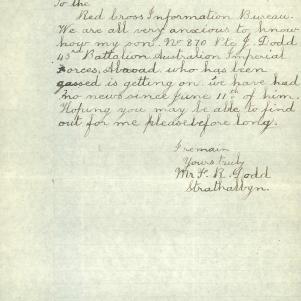 To the
Red Cross Information Bureau.
We are all very anxious to know
how my son. No 870 Pte J. Dodd
43rd Battalion Australian Imperial
Forces, Abroad, who has been
gassed is getting on we have had
no news since June 11th of him.
Hoping you may be able to find
out for me please before long.
I remain
Yours truly
Mr F. R. Dodd
Strathalbyn.